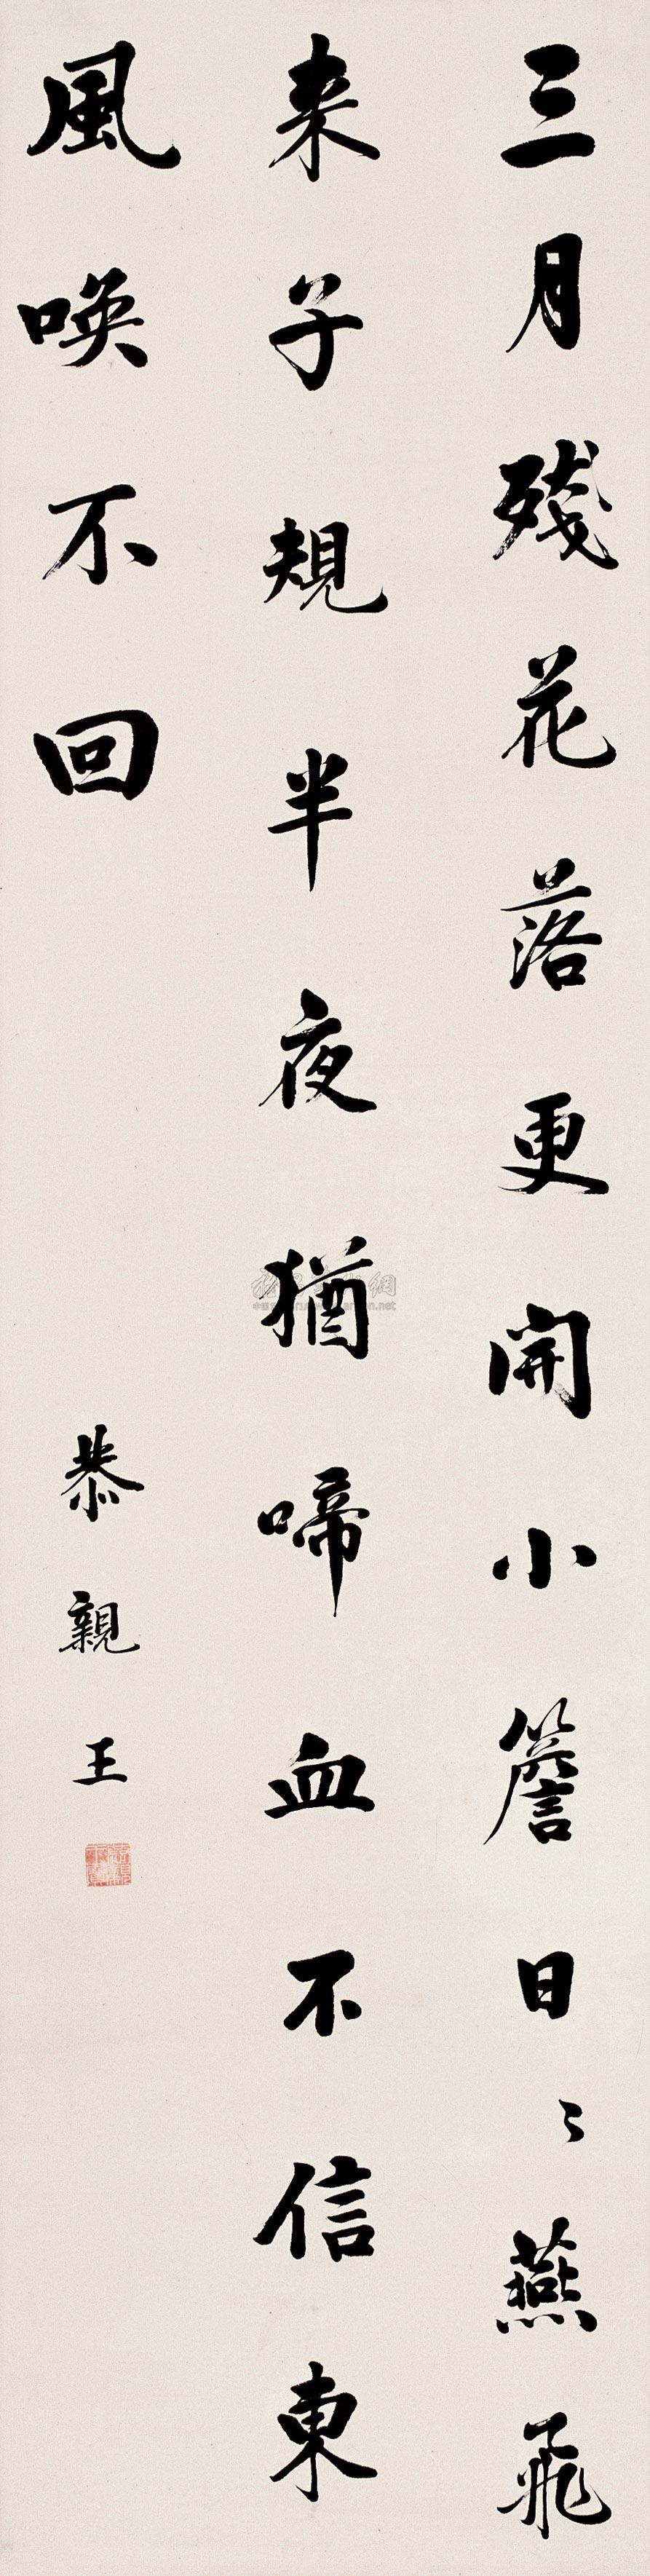 三月殘花落更開小簷日〻燕飛
来子規半夜猶啼血不信東
風喚不回
恭親王